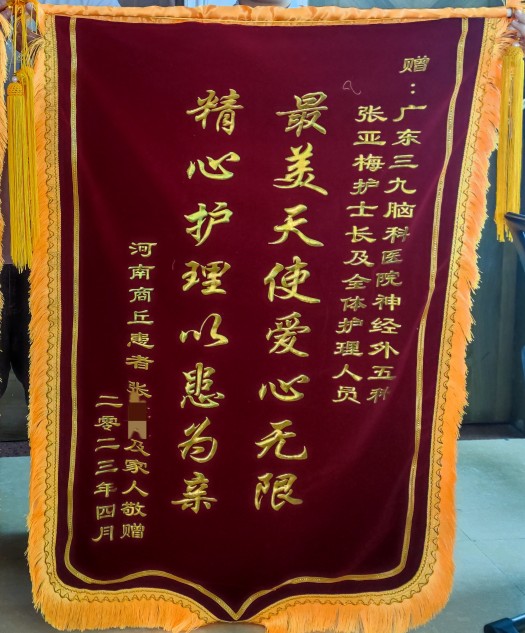 赠：广东三九脑科医院神经外五科
张亚梅护士长及全体护理人员
最美天使爱心无限
精心护理以患为亲
河南商丘患者张 及家人敬赠
二零二三年四月